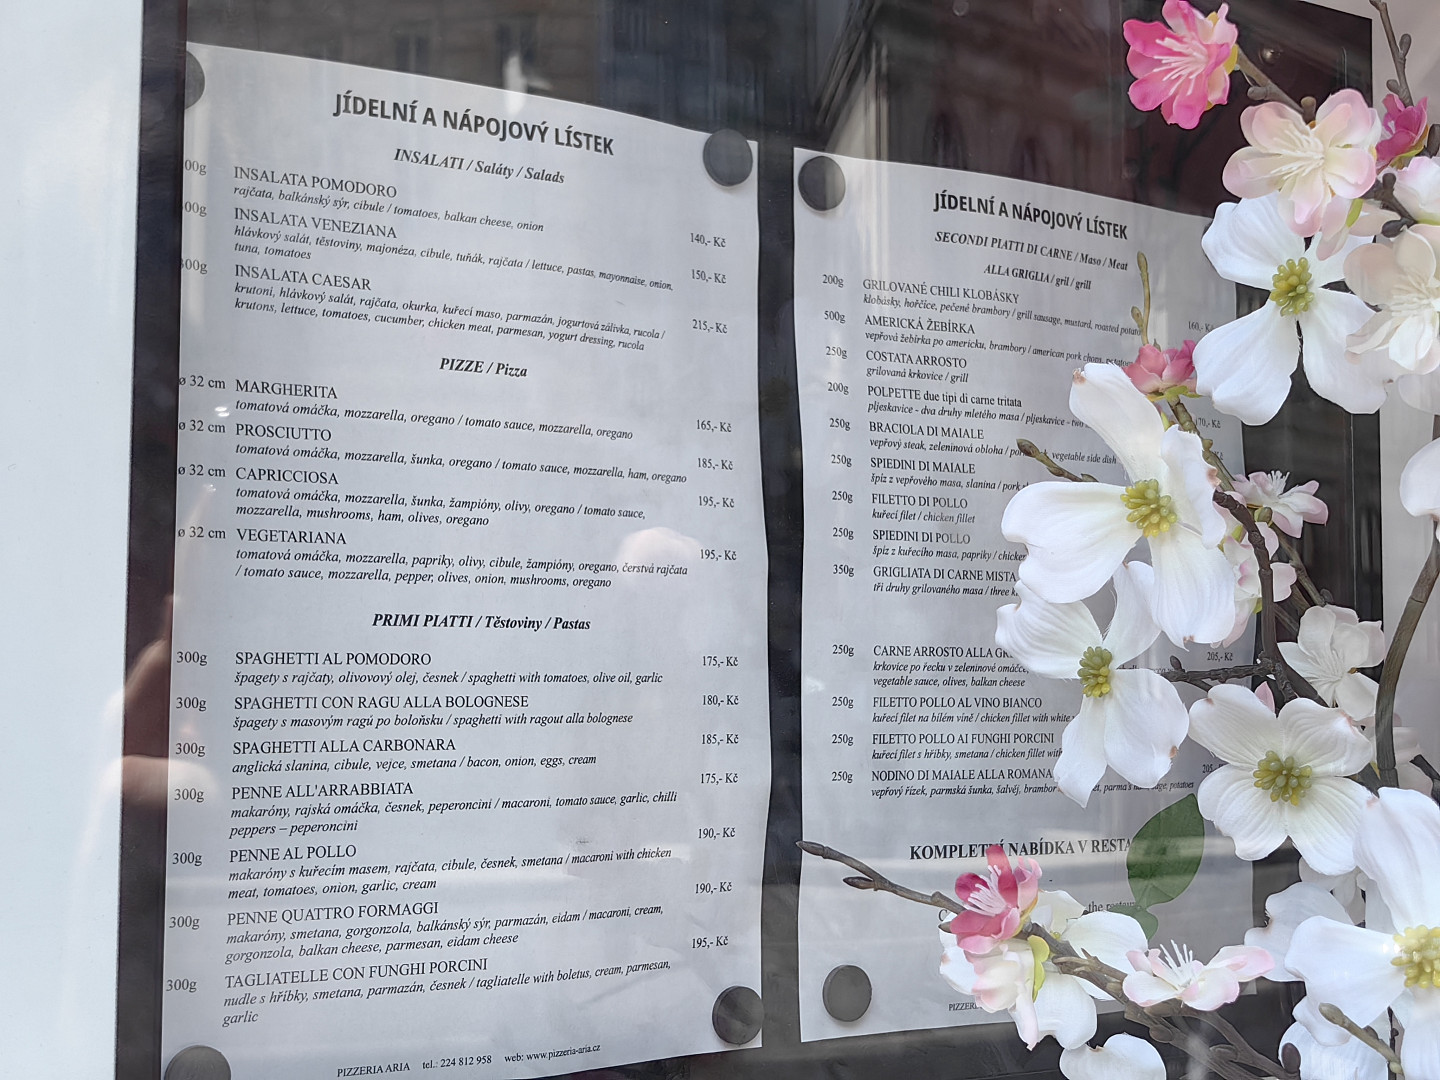 JÍDELNÍ A NÁPOJOVÝ LÍSTEK
INSALATI / Saláty / Salads
00g INSALATA POMODORO
rajčata, balkánský sýr, cibule / tomatoes, balkan cheese, onion 140,- Kč
00g INSALATA VENEZIANA
hlávkový salát, těstoviny, majonéza, cibule, tuňák, rajčata / lettuce, pastas, mayonnaise, onion, 150,- Kč
tuna, tomatoes
300g INSALATA CAESAR
krutoni, hlávkový salát, rajčata, okurka, kuřecí maso, parmazán, jogurtová zálivka, rucola / 215,- Kč
krutons, lettuce, tomatoes, cucumber, chicken meat, parmesan, yogurt dressing, rucola
PIZZE / Pizza
ø 32 cm MARGHERITA
tomatová omáčka, mozzarella, oregano / tomato sauce, mozzarella, oregano 165,- Kč
ø 32 cm PROSCIUTTO
tomatová omáčka, mozzarella, šunka, oregano / tomato sauce, mozzarella, ham, oregano 185,- Kč
ø 32 cm CAPRICCIOSA
tomatová omáčka, mozzarella, šunka, žampióny, olivy, oregano / tomato sauce, 195,- Kč
mozzarella, mushrooms, ham, olives, oregano
ø 32 cm VEGETARIANA
tomatová omáčka, mozzarella, papriky, olivy, cibule, žampióny, oregano, čerstvá rajčata 195,- Kč
/ tomato sauce, mozzarella, pepper, olives, onion, mushrooms, oregano
PRIMI PIATTI / Těstoviny / Pastas
300g SPAGHETTI AL POMODORO 175,- Kč
špagety s rajčaty, olivovový olej, česnek / spaghetti with tomatoes, olive oil, garlic
300g SPAGHETTI CON RAGU ALLA BOLOGNESE 180,- Kč
špagety s masovým ragú po boloňsku / spaghetti with ragout alla bolognese
300g SPAGHETTI ALLA CARBONARA 185,- Kč
anglická slanina, cibule, vejce, smetana / bacon, onion, eggs, cream
300g PENNE ALL'ARRABBIATA 175,- Kč
makaróny, rajská omáčka, česnek, peperoncini / macaroni, tomato sauce, garlic, chilli
peppers – peperoncini
300g PENNE AL POLLO 190,- Kč
makaróny s kuřecím masem, rajčata, cibule, česnek, smetana / macaroni with chicken
meat, tomatoes, onion, garlic, cream
300g PENNE QUATTRO FORMAGGI 190,- Kč
makaróny, smetana, gorgonzola, balkánský sýr, parmazán, eidam / macaroni, cream,
gorgonzola, balkan cheese, parmesan, eidam cheese
300g TAGLIATELLE CON FUNGHI PORCINI 195,- Kč
nudle s hříbky, smetana, parmazán, česnek / tagliatelle with boletus, cream, parmesan,
garlic
PIZZERIA ARIA tel.: 224 812 958 web: www.pizzeria-aria.cz
JÍDELNÍ A NÁPOJOVÝ LÍSTEK
SECONDI PIATTI DI CARNE / Maso / Meat
ALLA GRIGLIA / gril / grill
200g GRILOVANÉ CHILI KLOBÁSKY
klobásky, hořčice, pečené brambory / grill sausage, mustard, roasted potato 160,- K
500g AMERICKÁ ŽEBÍRKA
vepřová žebírka po americku, brambory / american pork chops, potatoes
250g COSTATA ARROSTO
grilovaná krkovice / grill
200g POLPETTE due tipi di carne tritata
pljeskavice - dva druhy mletého masa / pljeskavice - two 170,- Kč
250g BRACIOLA DI MAIALE
vepřový steak, zeleninová obloha / vegetable side dish
250g SPIEDINI DI MAIALE
špíz z vepřového masa, slanina / pork
250g FILETTO DI POLLO
kuřecí filet / chicken fillet
250g SPIEDINI DI POLLO
špíz z kuřecího masa, papriky / chicken
350g GRIGLIATA DI CARNE MISTA
tři druhy grilovaného masa / three
250g CARNE ARROSTO ALLA GR 205,- Kč
krkovice po řecku v zeleninové omáčce,
vegetable sauce, olives, balkan cheese
250g FILETTO POLLO AL VINO BIANCO
kuřecí filet na bílém víně / chicken fillet with white
250g FILETTO POLLO AI FUNGHI PORCINI
kuřecí filet s hříbky, smetana / chicken fillet with
250g NODINO DI MAIALE ALLA ROMANA 205
vepřový řízek, parmská šunka, šalvěj, brambor potatoes
KOMPLETNÍ NABÍDKA V RESTA
the
PIZZER